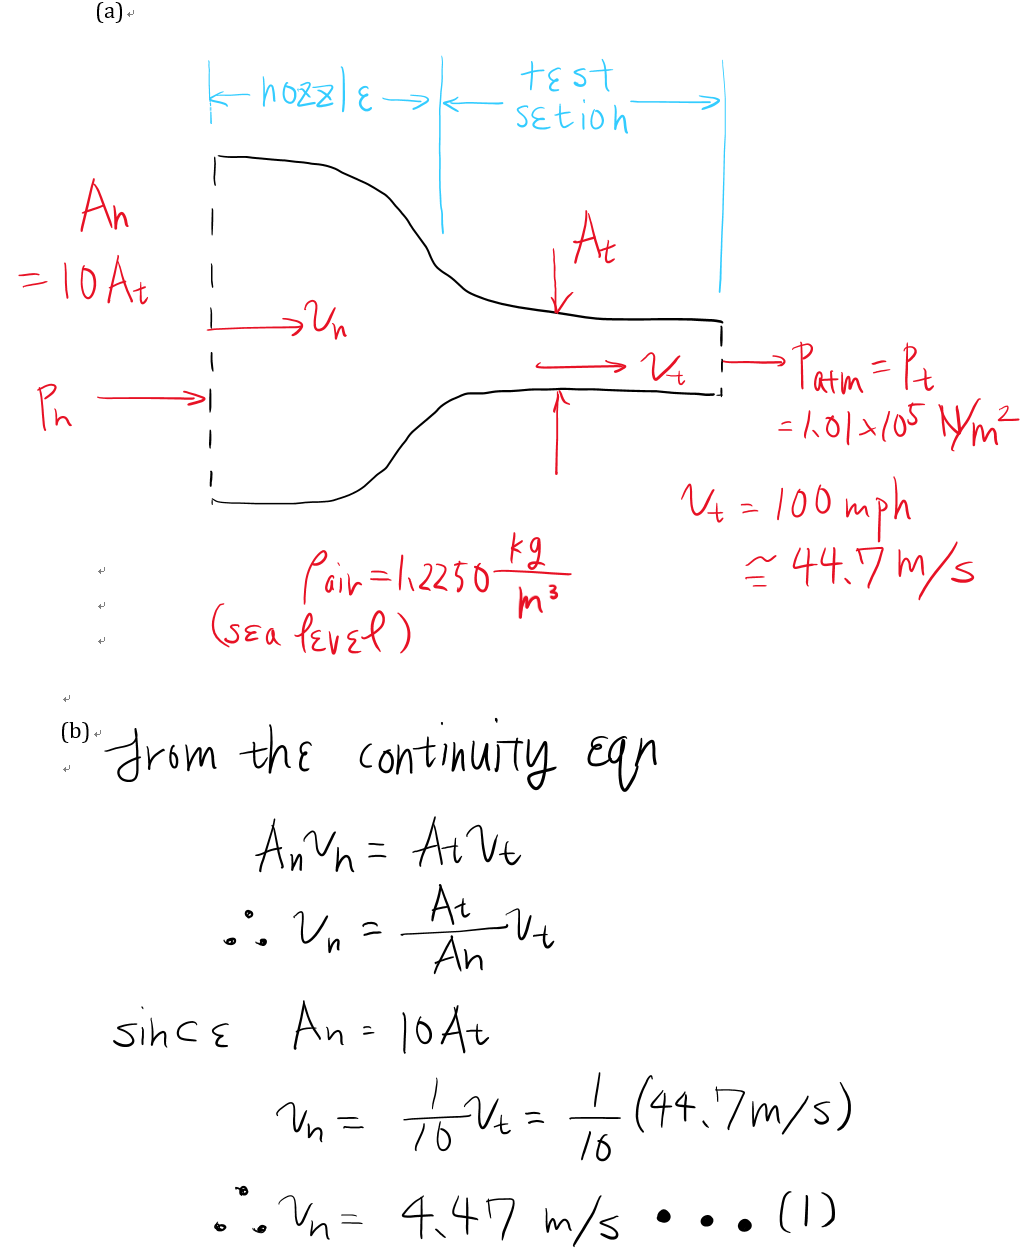 (a)
nozzlε
tεst
sεtion
An
= 10At
At
vn
vt
Pn
Patm = Pt
= 1.01×10⁵ N/m²
vt = 100 mph
≅ 44.7 m/s
ρair = 1.2250 kg/m³
(sεa lεvεl)
(b) from thε continuity εqn
Anvn = Atvt
∴ vn = At/An vt
sincε An = 10At
vn = 1/10 vt = 1/10 (44.7m/s)
∴ vn = 4.47 m/s • • • (1)